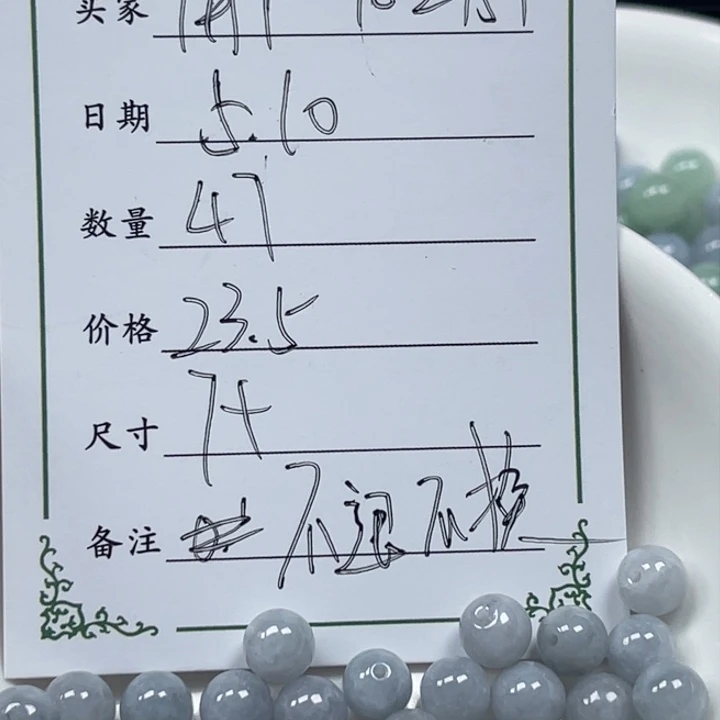 买家
日期 5.10
数量 47
价格 23.5
尺寸 7+
备注 不退不换